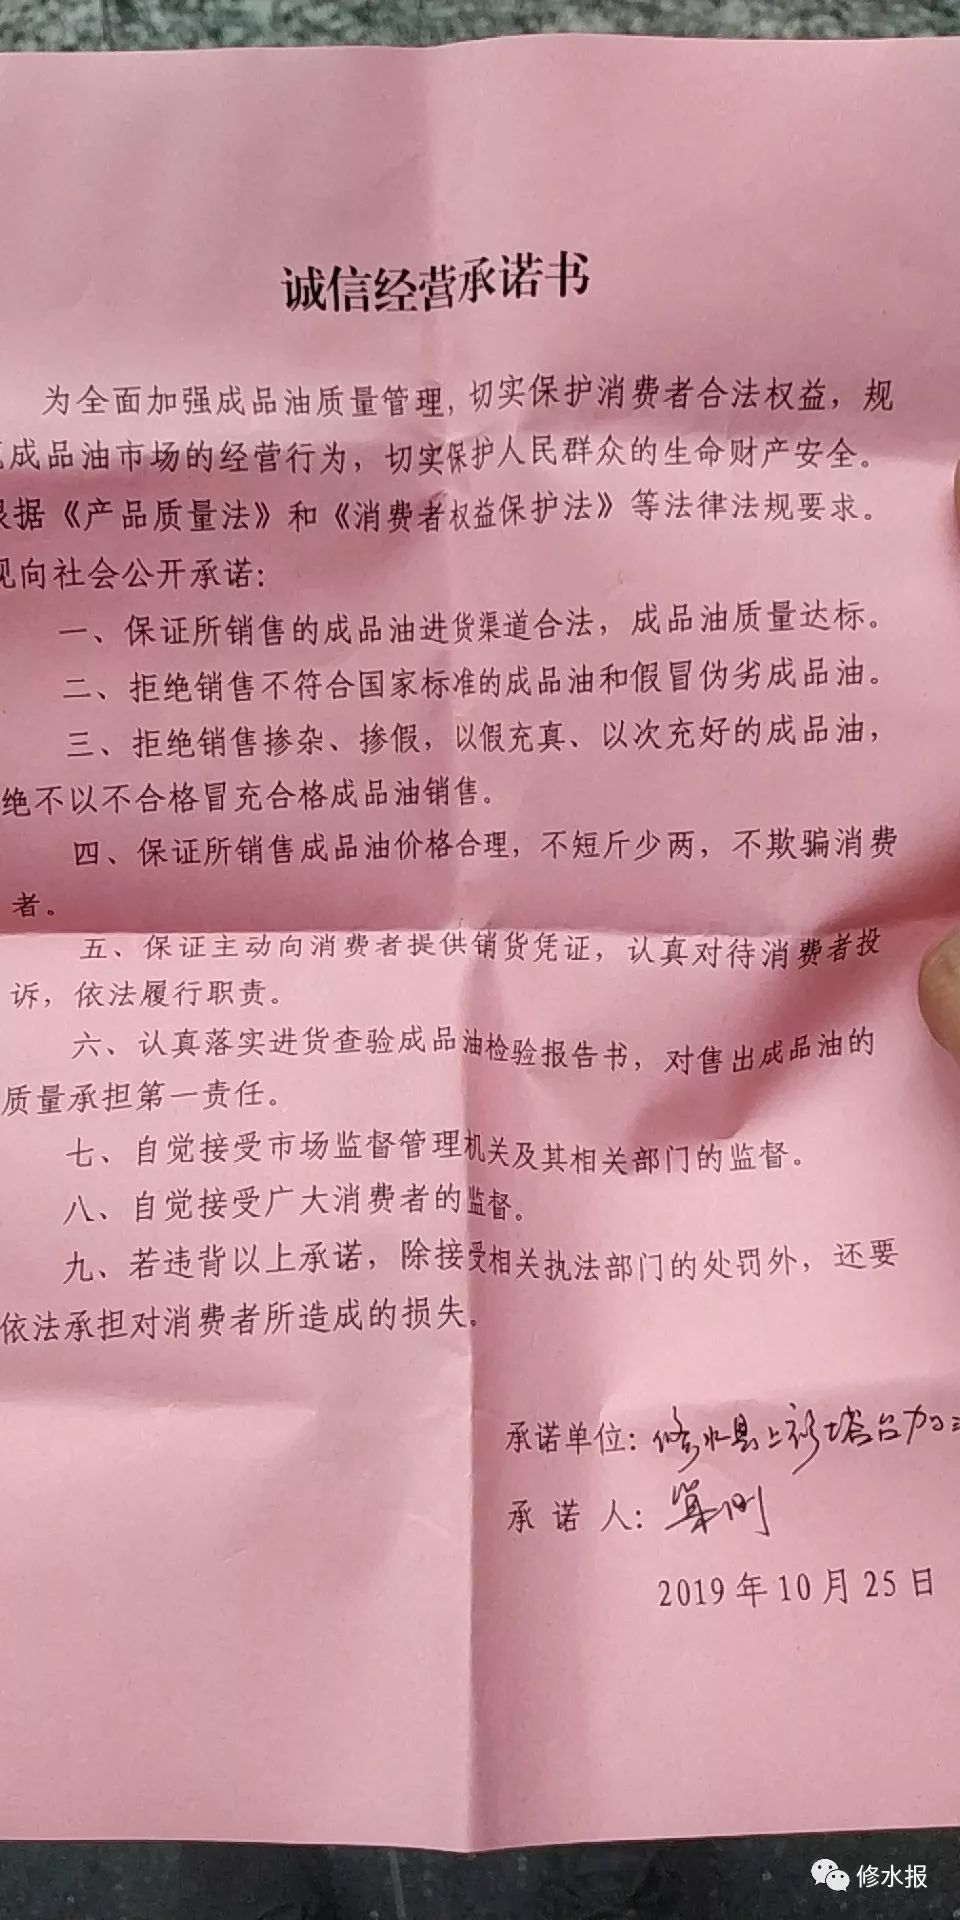 诚信经营承诺书
为全面加强成品油质量管理，切实保护消费者合法权益，规
成品油市场的经营行为，切实保护人民群众的生命财产安全。
根据《产品质量法》和《消费者权益保护法》等法律法规要求。
现向社会公开承诺：
一、保证所销售的成品油进货渠道合法，成品油质量达标。
二、拒绝销售不符合国家标准的成品油和假冒伪劣成品油。
三、拒绝销售掺杂、掺假，以假充真、以次充好的成品油，
绝不以不合格冒充合格成品油销售。
四、保证所销售成品油价格合理，不短斤少两，不欺骗消费
者。
五、保证主动向消费者提供销货凭证，认真对待消费者投
诉，依法履行职责。
六、认真落实进货查验成品油检验报告书，对售出成品油的
质量承担第一责任。
七、自觉接受市场监督管理机关及其相关部门的监督。
八、自觉接受广大消费者的监督。
九、若违背以上承诺，除接受相关执法部门的处罚外，还要
依法承担对消费者所造成的损失。
承诺单位：修水县上衫塔台加
承诺人：
2019年10月25日
修水报